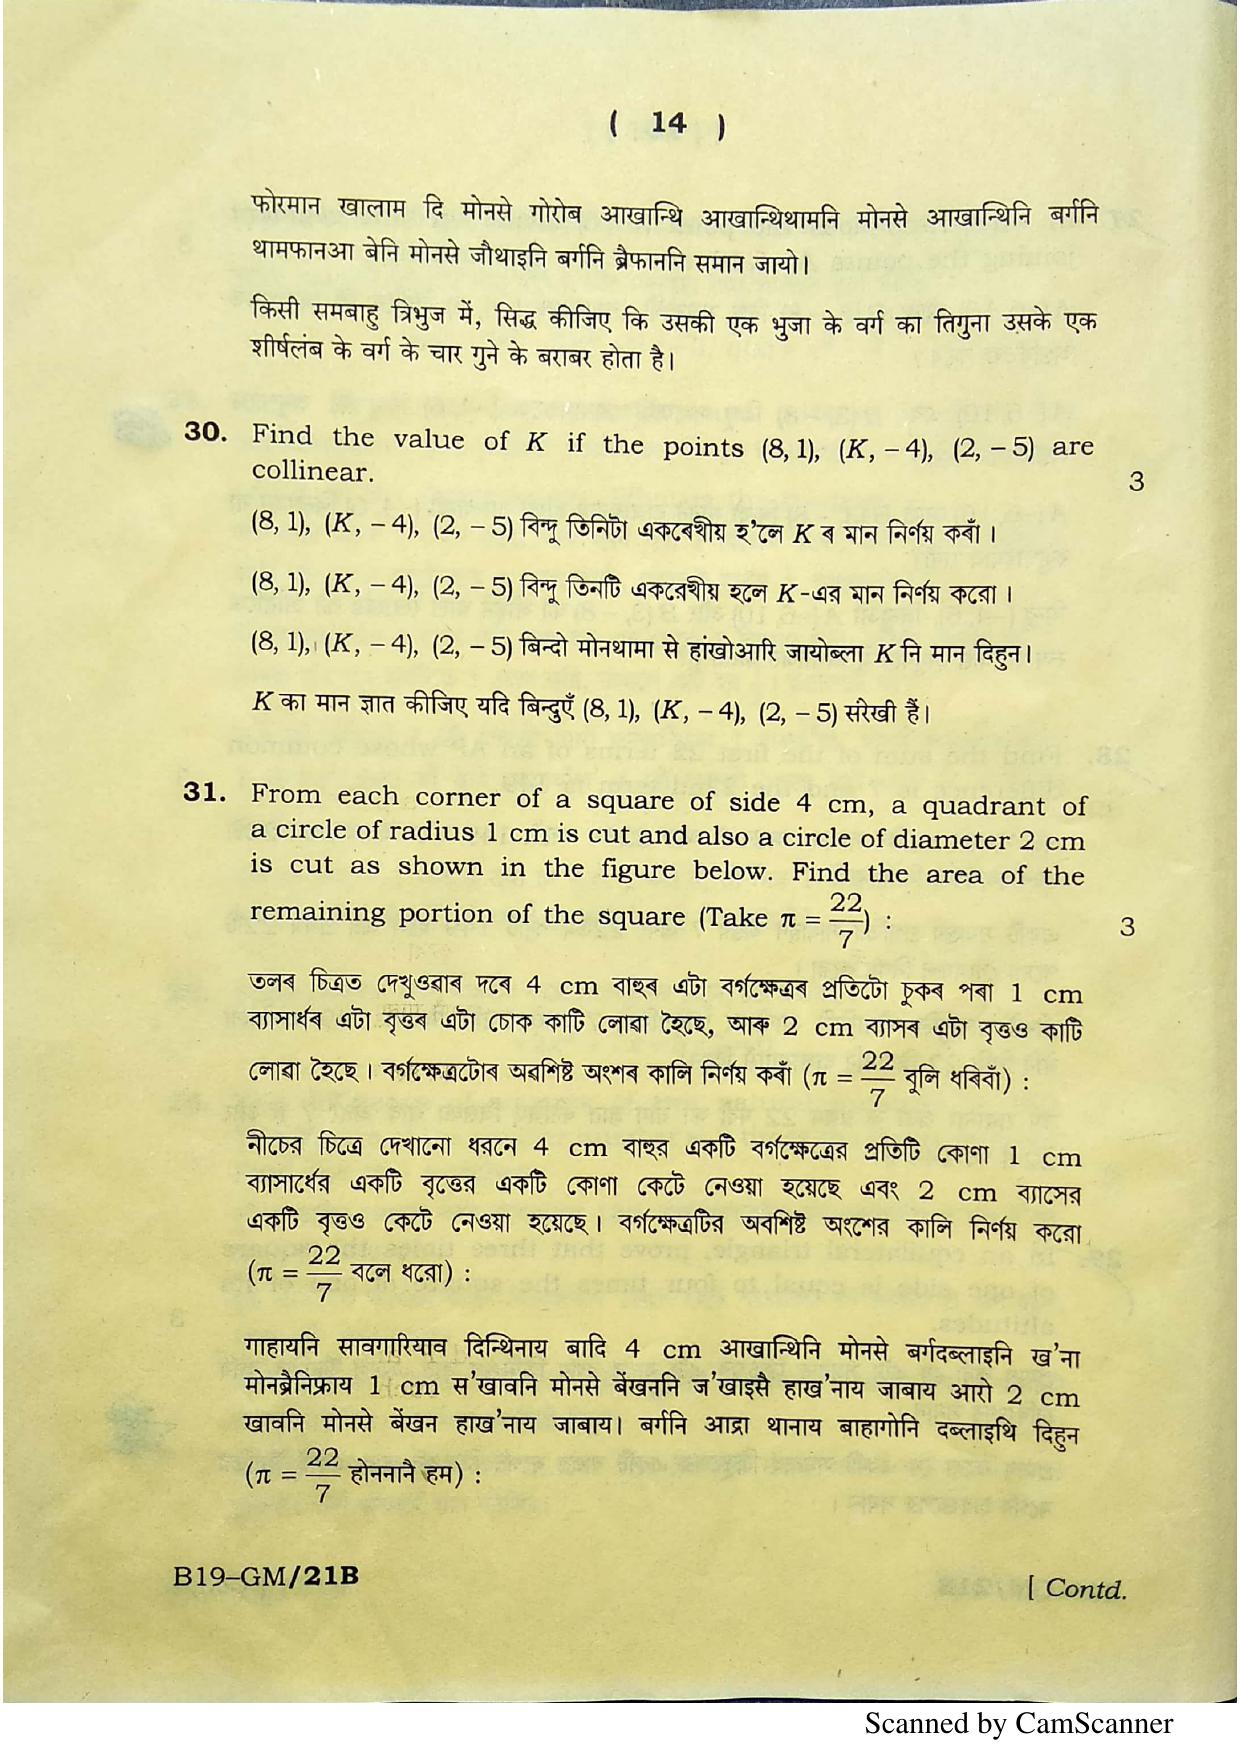 ( 14 )
फोरमान खालाम दि मोनसे गोरोब आखान्थि आखान्थिथामनि मोनसे आखान्थिनि बर्गनि
थामफानआ बेनि मोनसे जौथाइनि बर्गनि ब्रैफाननि समान जायो।
किसी समबाहु त्रिभुज में, सिद्ध कीजिए कि उसकी एक भुजा के वर्ग का तिगुना उसके एक
शीर्षलंब के वर्ग के चार गुने के बराबर होता है।
30. Find the value of K if the points (8, 1), (K, – 4), (2, – 5) are
collinear. 3
(8, 1), (K, – 4), (2, – 5) বিন্দু তিনিটা একৰেখীয় হ’লে K ৰ মান নিৰ্ণয় কৰাঁ।
(8, 1), (K, – 4), (2, – 5) বিন্দু তিনটি একরেখীয় হলে K-এর মান নির্ণয় করো।
(8, 1), (K, – 4), (2, – 5) बिन्दो मोनथामा से हांखोआरि जायोब्ला K नि मान दिहुन।
K का मान ज्ञात कीजिए यदि बिन्दुएँ (8, 1), (K, – 4), (2, – 5) संरेखी हैं।
31. From each corner of a square of side 4 cm, a quadrant of
a circle of radius 1 cm is cut and also a circle of diameter 2 cm
is cut as shown in the figure below. Find the area of the
remaining portion of the square (Take π = 22/7) : 3
তলৰ চিত্ৰত দেখুওৱাৰ দৰে 4 cm বাহুৰ এটা বৰ্গক্ষেত্ৰৰ প্ৰতিটো চুকৰ পৰা 1 cm
ব্যাসাৰ্ধৰ এটা বৃত্তৰ এটা চোক কাটি লোৱা হৈছে, আৰু 2 cm ব্যাসৰ এটা বৃত্তও কাটি
লোৱা হৈছে। বৰ্গক্ষেত্ৰটোৰ অৱশিষ্ট অংশৰ কালি নিৰ্ণয় কৰাঁ (π = 22/7 বুলি ধৰিবাঁ) :
নীচের চিত্রে দেখানো ধরনে 4 cm বাহুর একটি বর্গক্ষেত্রের প্রতিটি কোণা 1 cm
ব্যাসার্ধের একটি বৃত্তের একটি কোণা কেটে নেওয়া হয়েছে এবং 2 cm ব্যাসের
একটি বৃত্তও কেটে নেওয়া হয়েছে। বর্গক্ষেত্রটির অবশিষ্ট অংশের কালি নির্ণয় করো
(π = 22/7 বলে ধরো) :
गाहायनि सावगारियाव दिन्थिनाय बादि 4 cm आखान्थिनि मोनसे बर्गदब्लाइनि ख'ना
मोनब्रैनिफ्राय 1 cm स'खावनि मोनसे बेंखननि ज'खाइसै हाख'नाय जाबाय आरो 2 cm
खावनि मोनसे बेंखन हाख'नाय जाबाय। बर्गनि आद्रा थानाय बाहागोनि दब्लाइथि दिहुन
(π = 22/7 होननानै हम) :
B19–GM/21B
[ Contd.
Scanned by CamScanner